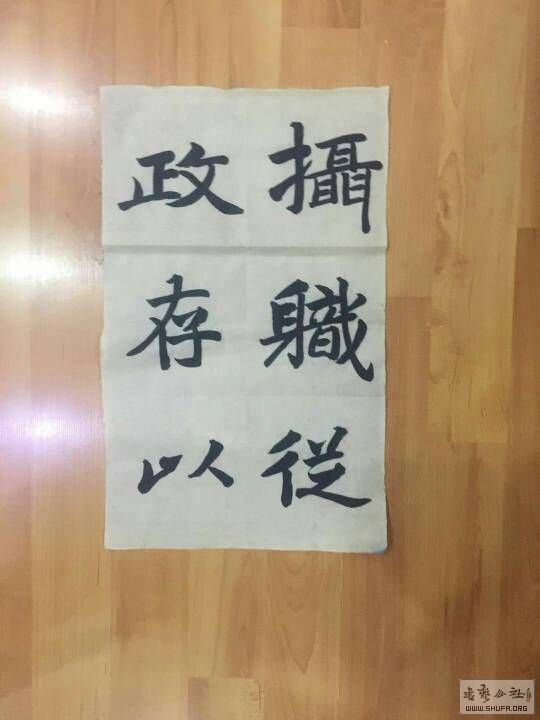 攝職從
政存以
书艺公社
WWW.SHUFA.ORG